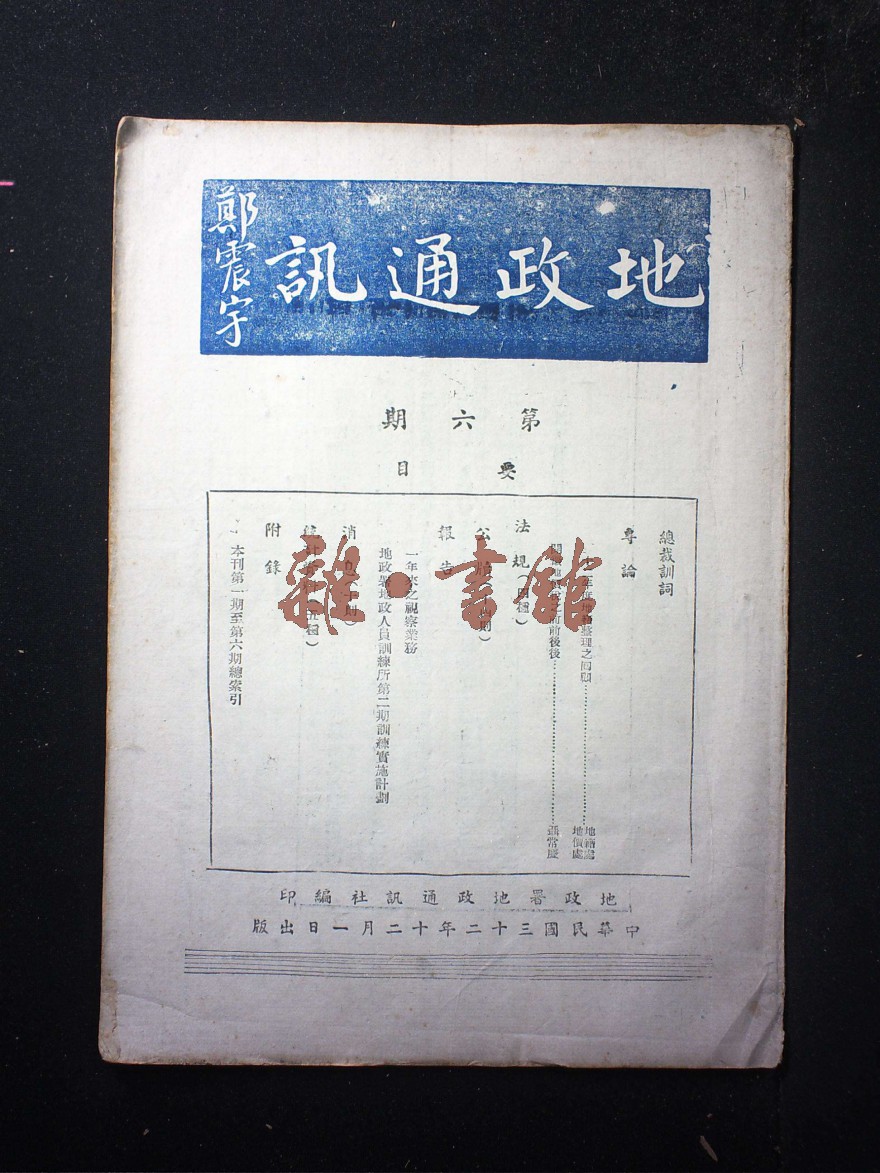 地政通訊
鄭震宇
第六期
要目
總裁訓詞
專論
年度地籍整理之回顧………地籍處
地價處
前前後後………張常慶
法規（四種）
公
報告
一年來之視察業務
地政署地政人員訓練所第二期訓練實施計劃
消
附錄
本刊第一期至第六期總索引
地政署地政通訊社編印
中華民國三十二年十二月一日出版
雜·書館